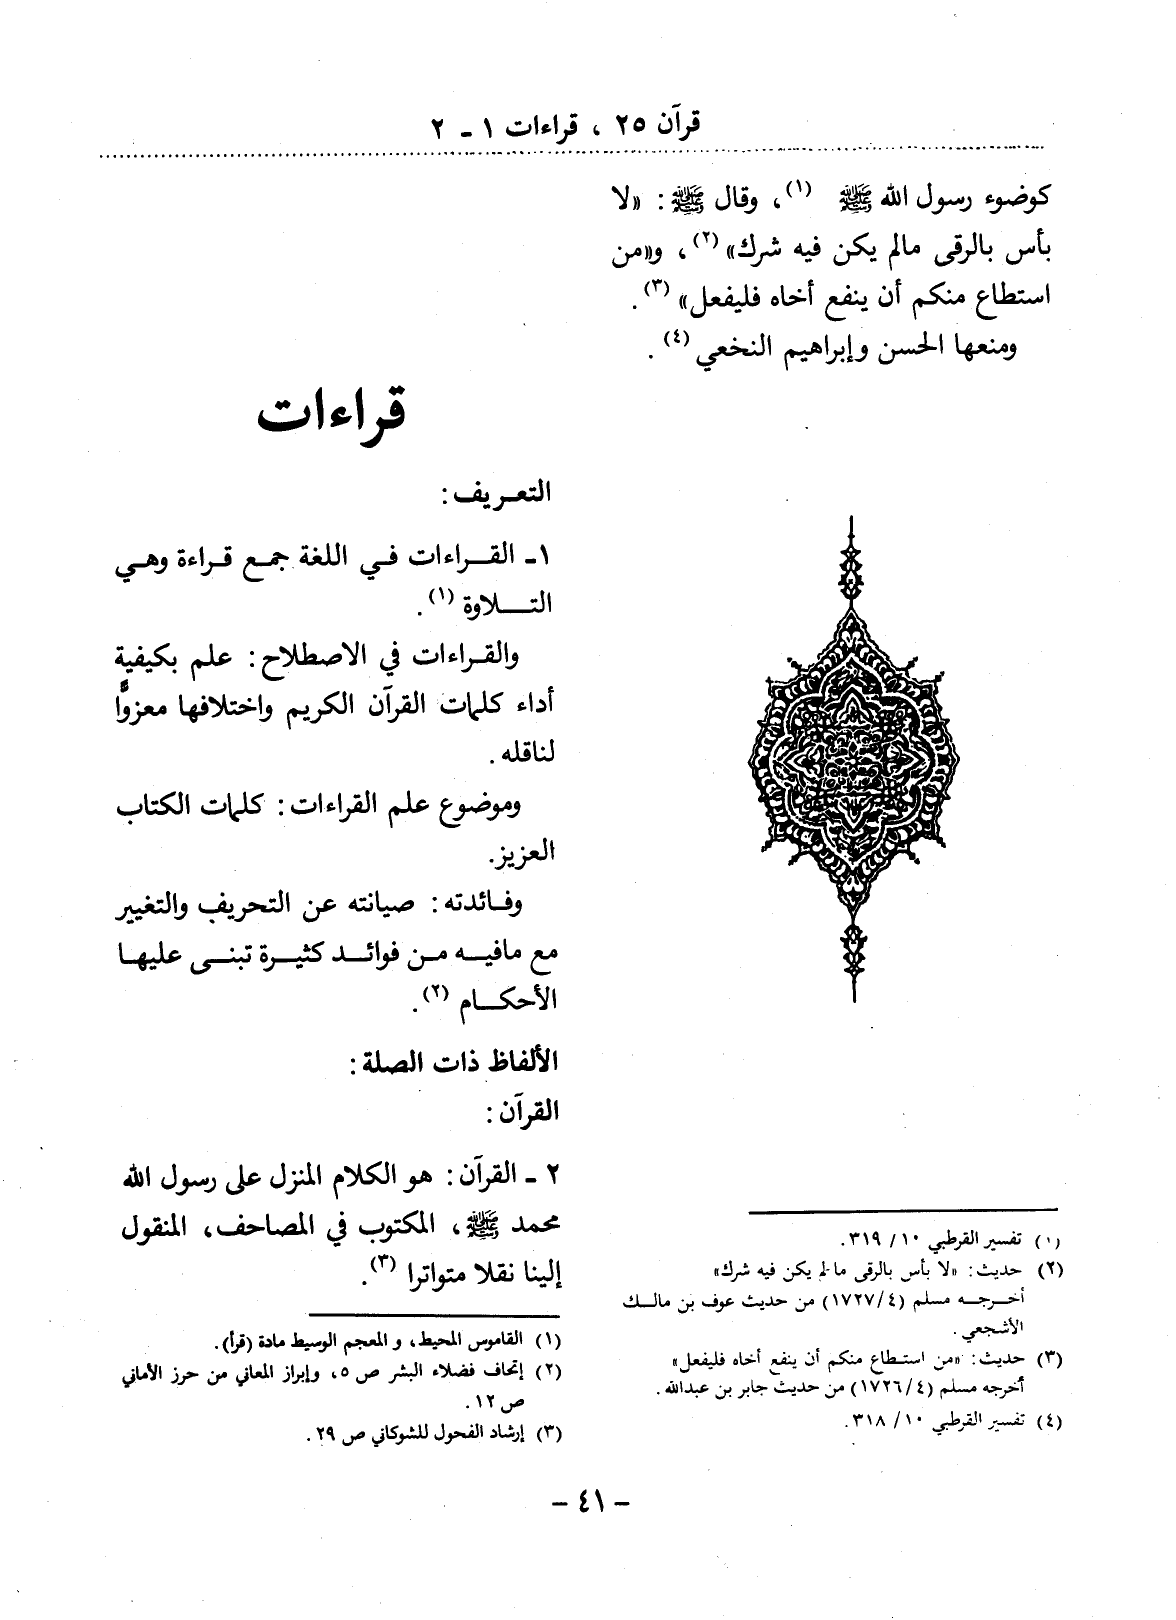 قرآن ٢٥ ، قراءات ١ - ٢
كوضوء رسول الله ﷺ (١)، وقال ﷺ : «لا
بأس بالرقى مالم يكن فيه شرك» (٢)، و«من
استطاع منكم أن ينفع أخاه فليفعل» (٣).
ومنعها الحسن وإبراهيم النخعي (٤).
(١) تفسير القرطبي ١٠/ ٣١٩.
(٢) حديث: «لا بأس بالرقى ما لم يكن فيه شرك»
أخرجه مسلم (٤/ ١٧٢٧) من حديث عوف بن مالك
الأشجعي .
(٣) حديث: «من استطاع منكم أن ينفع أخاه فليفعل»
أخرجه مسلم (٤/ ١٧٢٦) من حديث جابر بن عبدالله .
(٤) تفسير القرطبي ١٠/ ٣١٨.
قراءات
التعريف :
١- القراءات في اللغة جمع قراءة وهي
التلاوة (١).
والقراءات في الاصطلاح : علم بكيفية
أداء كلمات القرآن الكريم واختلافها معزوًّا
لناقله .
وموضوع علم القراءات : كلمات الكتاب
العزيز.
وفائدته : صيانته عن التحريف والتغيير
مع مافيه من فوائد كثيرة تبنى عليها
الأحكام (٢).
الألفاظ ذات الصلة :
القرآن :
٢ - القرآن : هو الكلام المنزل على رسول الله
محمد ﷺ، المكتوب في المصاحف، المنقول
إلينا نقلا متواترا (٣).
(١) القاموس المحيط، و المعجم الوسيط مادة (قرأ).
(٢) إتحاف فضلاء البشر ص ٥، وإبراز المعاني من حرز الأماني
ص ١٢ .
(٣) إرشاد الفحول للشوكاني ص ٢٩ .
- ٤١ -